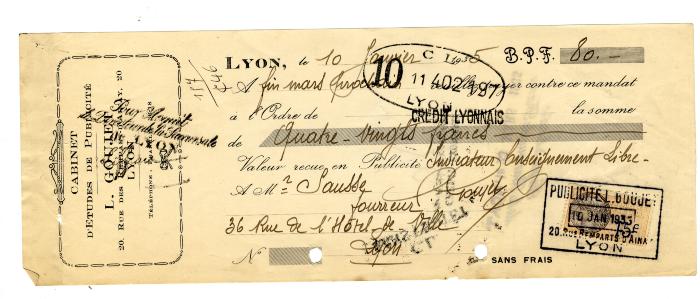 CABINET
D'ETUDES DE PUBLICITÉ
L. GOUJET
20, RUE DES REMPARTS D'AINAY, 20
LYON
Pour Acquit
LYON, le 10 Janvier 1935 B.P.F. 80.-
A fin mars prochain payer contre ce mandat
à l'Ordre de la somme
de Quatre-vingts francs
Valeur reçue en Publicité Indicateur Enseignement Libre-
A Mr Sausse
Fourreur
36 Rue de l'Hôtel de Ville
Lyon
SANS FRAIS
10
C L
11 402
LYON
CRÉDIT LYONNAIS
PUBLICITÉ L. GOUJET
10 JAN 1935
20, RUE REMPARTS D'AINAY
LYON